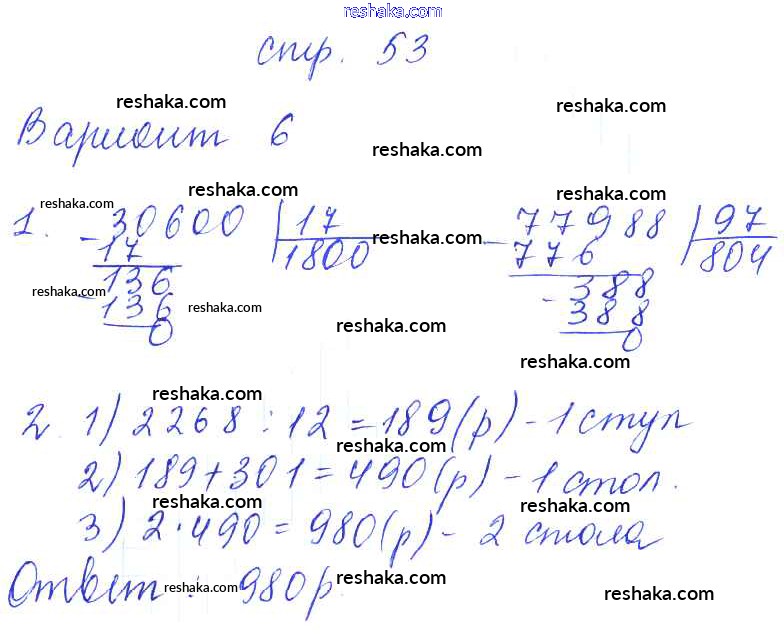 reshaka.com
стр. 53
reshaka.com
reshaka.com
Вариант 6
reshaka.com
reshaka.com
reshaka.com
reshaka.com
1. - 30600 | 17
17 1800
136
- 136
0
reshaka.com
- 77988 | 97
776 804
388
- 388
0
reshaka.com
reshaka.com
reshaka.com
reshaka.com
reshaka.com
reshaka.com
reshaka.com
2. 1) 2268 : 12 = 189 (р) - 1 стул
reshaka.com
2) 189 + 301 = 490 (р) - 1 стол.
reshaka.com
reshaka.com
3) 2 · 490 = 980 (р) - 2 стола
reshaka.com
Ответ: 980 р.
reshaka.com
reshaka.com
reshaka.com